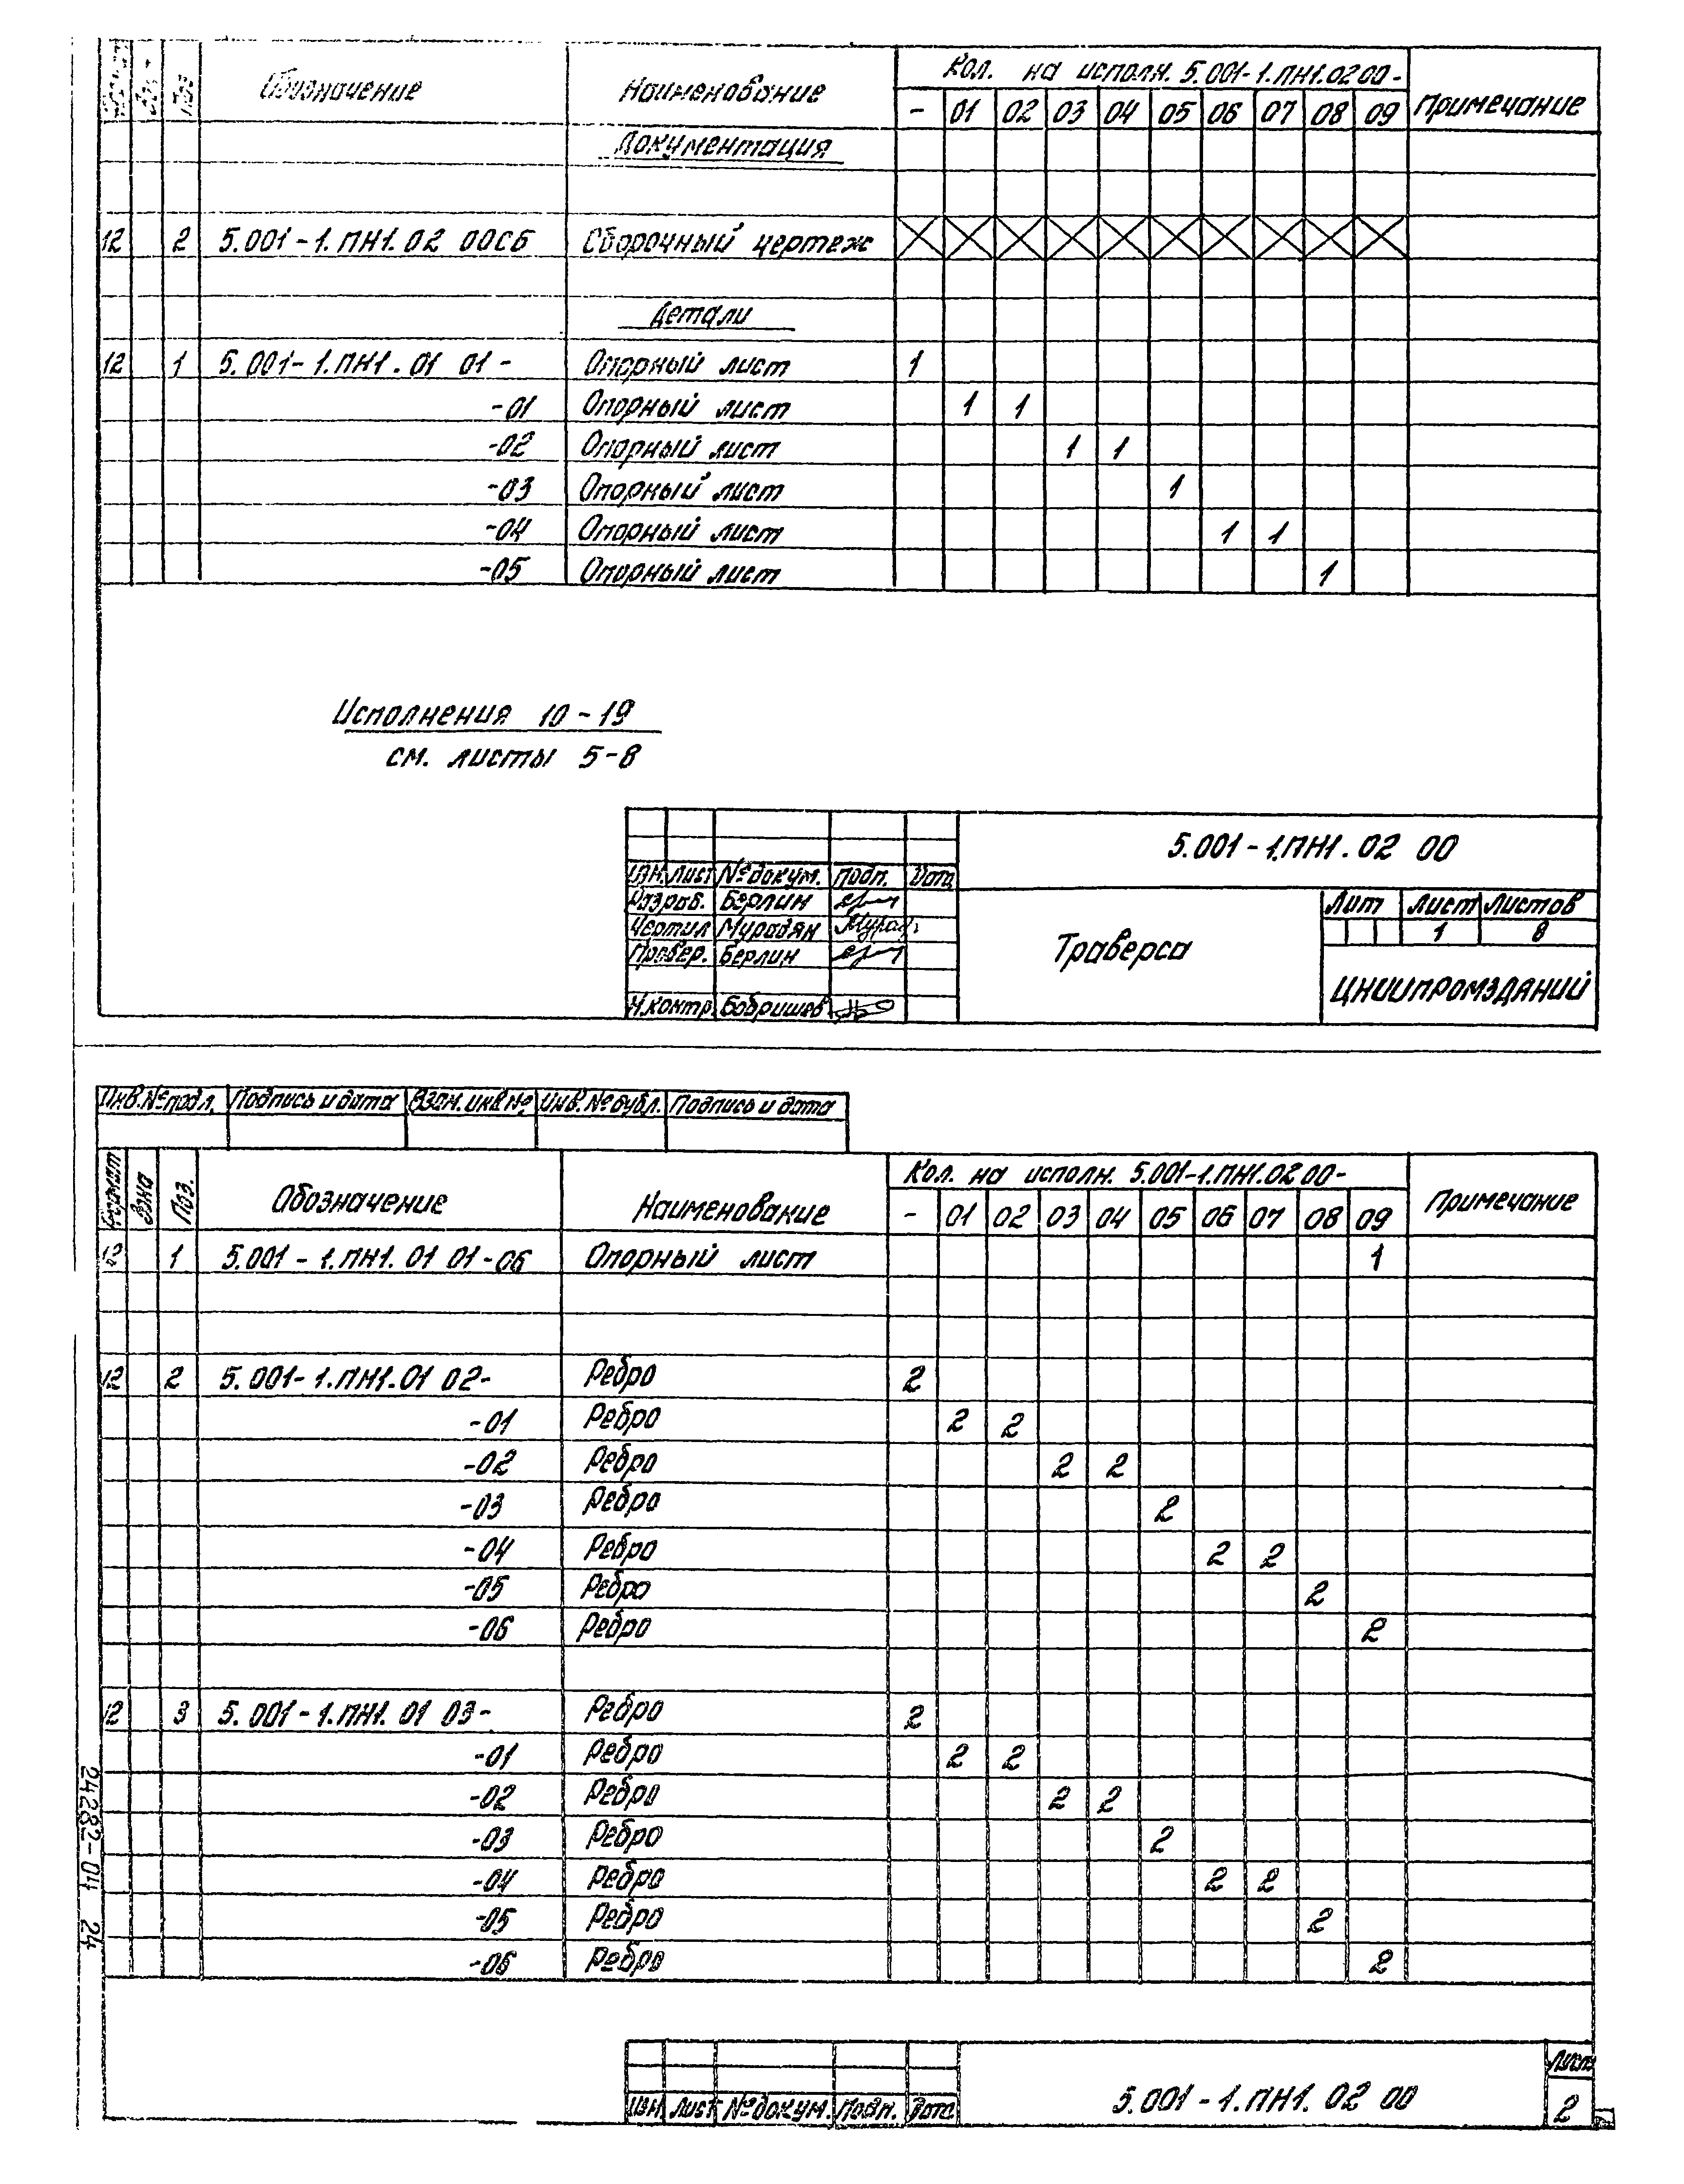 Поз
Обозначение
Наименование
Кол. на исполн. 5.001-1.ПН1.02 00-
Примечание
- 01 02 03 04 05 06 07 08 09
Документация
12 2 5.001-1.ПН1.02 00СБ Сборочный чертеж
Детали
12 1 5.001-1.ПН1.01 01- Опорный лист 1
-01 Опорный лист 1 1
-02 Опорный лист 1 1
-03 Опорный лист 1
-04 Опорный лист 1 1
-05 Опорный лист 1
Исполнения 10-19
см. листы 5-8
5.001-1.ПН1.02 00
Изм. Лист № докум. Подп. Дата
Разраб. Берлин
Чертил Мурадян
Провер. Берлин
Н.контр. Бобришев
Траверса
Лит Лист Листов
1 8
ЦНИИПРОМЗДАНИЙ
Инв.№ подл. Подпись и дата Взам. инв № Инв. № дубл. Подпись и дата
Формат Зона Поз. Обозначение Наименование Кол. на исполн. 5.001-1.ПН1.02 00- Примечание
- 01 02 03 04 05 06 07 08 09
12 1 5.001-1.ПН1.01 01-06 Опорный лист 1
12 2 5.001-1.ПН1.01 02- Ребро 2
-01 Ребро 2 2
-02 Ребро 2 2
-03 Ребро 2
-04 Ребро 2 2
-05 Ребро 2
-06 Ребро 2
12 3 5.001-1.ПН1.01 03- Ребро 2
-01 Ребро 2 2
-02 Ребро 2 2
-03 Ребро 2
-04 Ребро 2 2
-05 Ребро 2
-06 Ребро 2
24282-04 24
Изм Лист № докум. Подп. Дата
5.001-1.ПН1.02 00
Лист
2